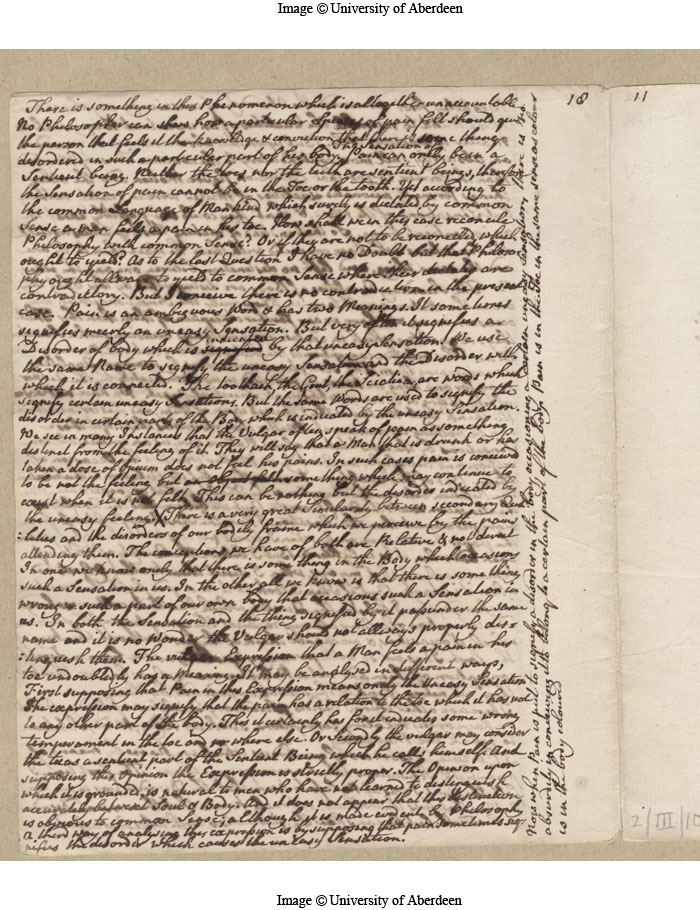 Image © University of Aberdeen
18
11
There is something in this Phenomenon which is altogether unaccountable
No Philosopher can shew how a particular of pain felt should give
the person that feels it the knowledge & conviction that there is some thing
The Sensation of
disordered in such a particular part of his body. Pain can only be in a
Sentient being. Neither the toes nor the teeth are sentient beings, therefore
the Sensation of pain cannot be in the Toe or the tooth. Yet according to
the common Language of Mankind which surely is dictated by common
Sense a man feels a pain in his toe. How shall we in this case reconcile
Philosophy with common Sense? Or if they are not to be reconciled which
ought to yield? As to the last Question I have no Doubt but that Philoso
phy ought allways to yield to common Sense where their are
contradictory. But I conceive there is no contradiction in the present
case. Pain is an ambiguous Word & has two Meanings. It sometimes
signifies meerly an uneasy Sensation. But very often it signifies a
indicated
Disorder of body which is signified by that uneasy Sensation. We use
the same Name to signify the uneasy Sensation and the Disorder with
which it is connected. The toothach the Gout, the Sciatica, are words which
signify certain uneasy Sensations. But the same Words are used to signify the
disorder in certain parts of the Body what is indicated by the uneasy Sensation.
We see in many Instances that the Vulgar often speak of pain as something
distinct from the feeling of it. They will say that a Man that is drunk or has
taken a dose of Opium does not feel his pains. In such cases pain is conceived
to be not the feeling but an object felt something which may continue to
exist when it is not felt. This can be nothing but the disorder indicated by
the uneasy feeling. X There is a very great Similarity between secondary Qua
:lities and the disorders of our bodily frame which we perceive by the pains
attending them. The conceptions we have of both are Relative & not direct
In one we know only that there is some thing in the Body which occasions
such a Sensation in us. In the other all we know is that there is some thing
wrong in such a part of our own body that occasions such a Sensation in
us. In both the Sensation and the thing signified by it pass under the same
name and it is no Wonder the Vulgar should not allways properly dis=
:tinguish them. The vulgar Expression that a Man feels a pain in his
toe undoubtedly has a Meaning. It may be analysed in different ways,
First supposing that Pain in this Expression means only the Uneasy Sensation
The expression may signify that the pain has a relation to the toe which it has not
to any other part of the body. This it certainly has for it indicates some wrong
temperament in the toe and no where else. Or Secondly the vulgar may consider
the toe as a sentient part of the Sentient Being which he calls himself And
supposing this Opinion the Expression is strictly proper. The Opinion upon
which it is grounded, is natural to men who have not learned to distinguish
accurately between Soul & Body. And it does not appear that this distinction
is obvious to common Sense; although it is made evident by Philosophy
A third way of analysing this expression is by supposing that pain sometimes sig=
nifies the disorder which causes the uneasy Sensation.
Now when Pain is put to signify a disorder in the body occasioning a certain uneasy Sensation, there is no
absurdity in conceiving it to belong to a certain part of the body. Pain is in the toe in the same sense as colour
is in the body coloured
2/III/10
Image © University of Aberdeen